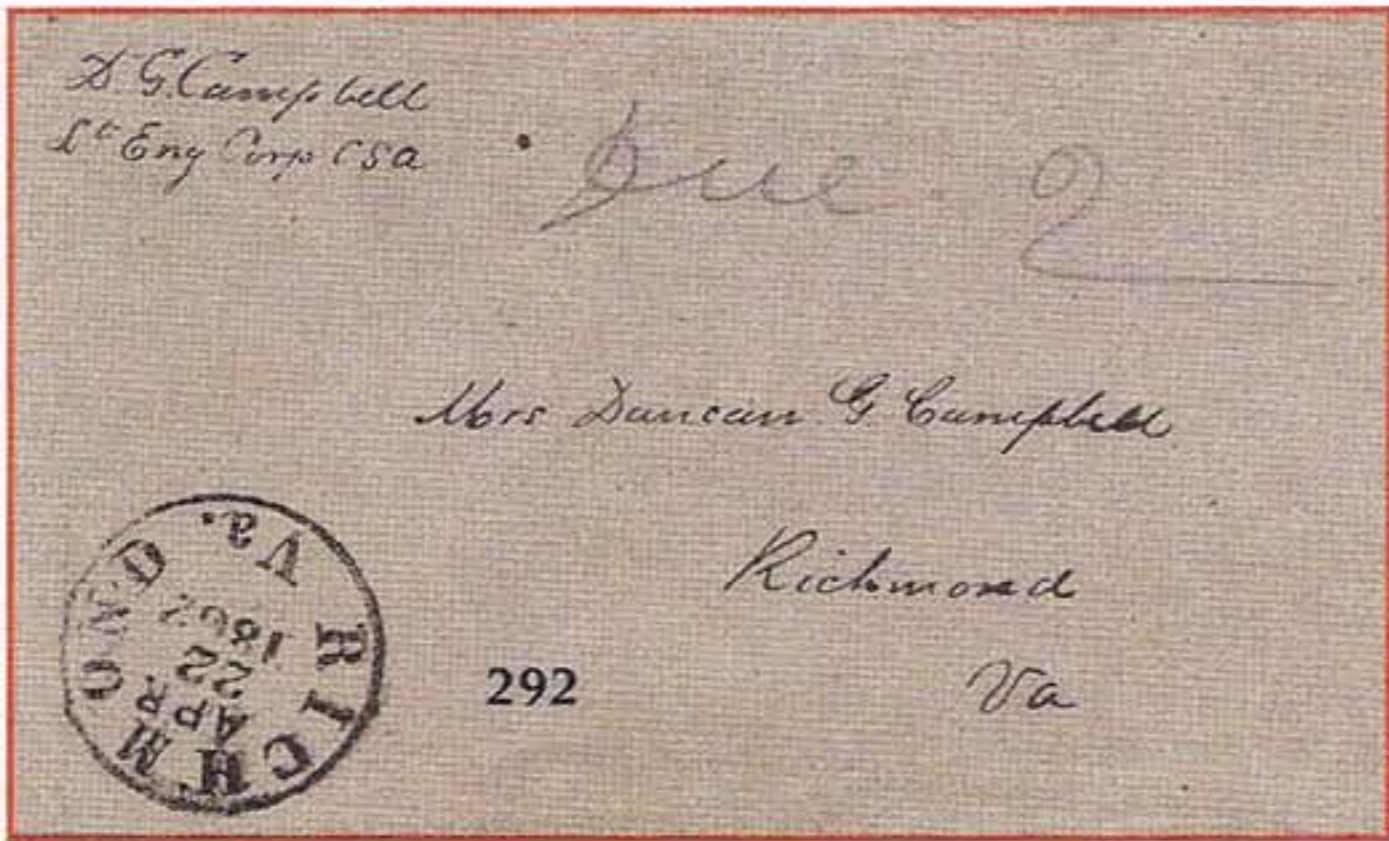 D. G. Campbell
Lt Eng Corp CSA
Due 2
Mrs Duncan G. Campbell
Richmond
Va
RICHMOND Va.
APR
22
1862
292